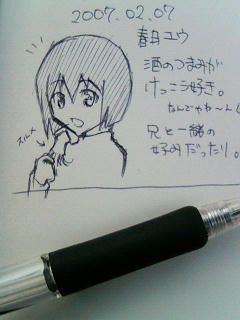 2007.02.07
春日ユウ
酒のつまみが
けっこう好き。
なんでやね〜ん!
兄と一緒の
好みだったり。
スルメ